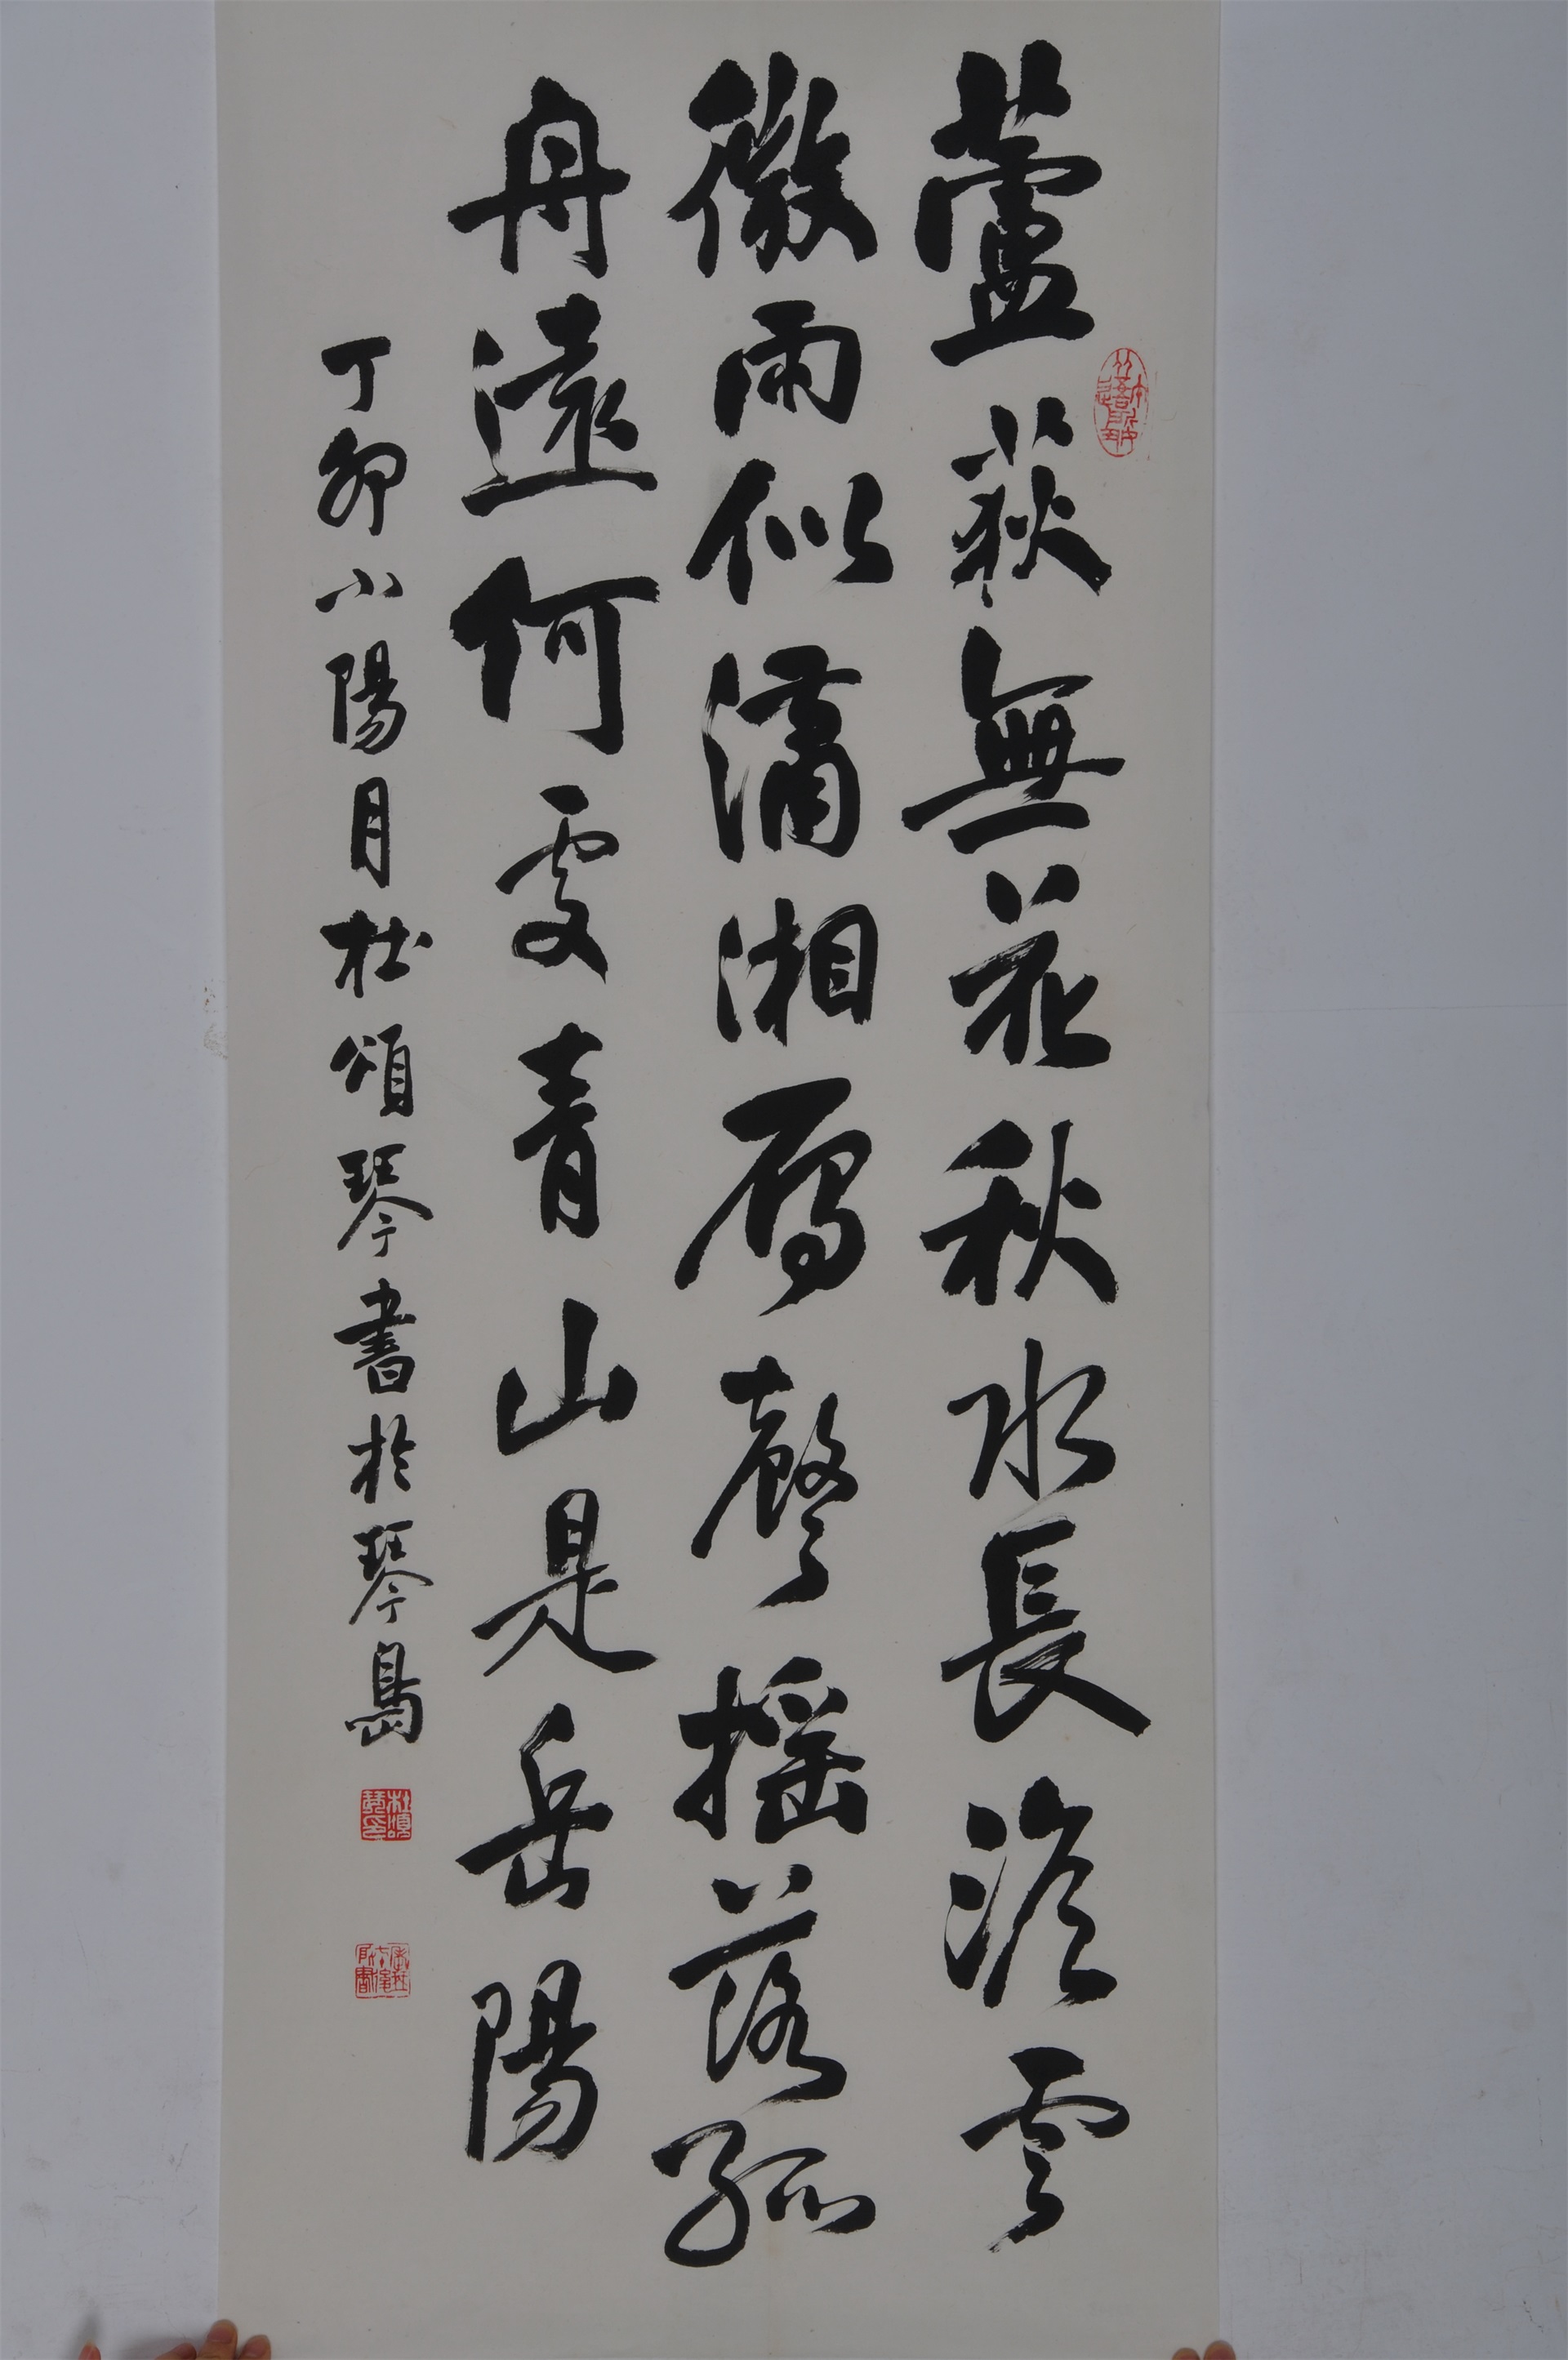 蘆荻無花秋水長淡雲
微雨似瀟湘雁聲搖落孤
舟遠何處青山是岳陽
丁卯小陽月杜頌琴書於琴島
杜頌琴印